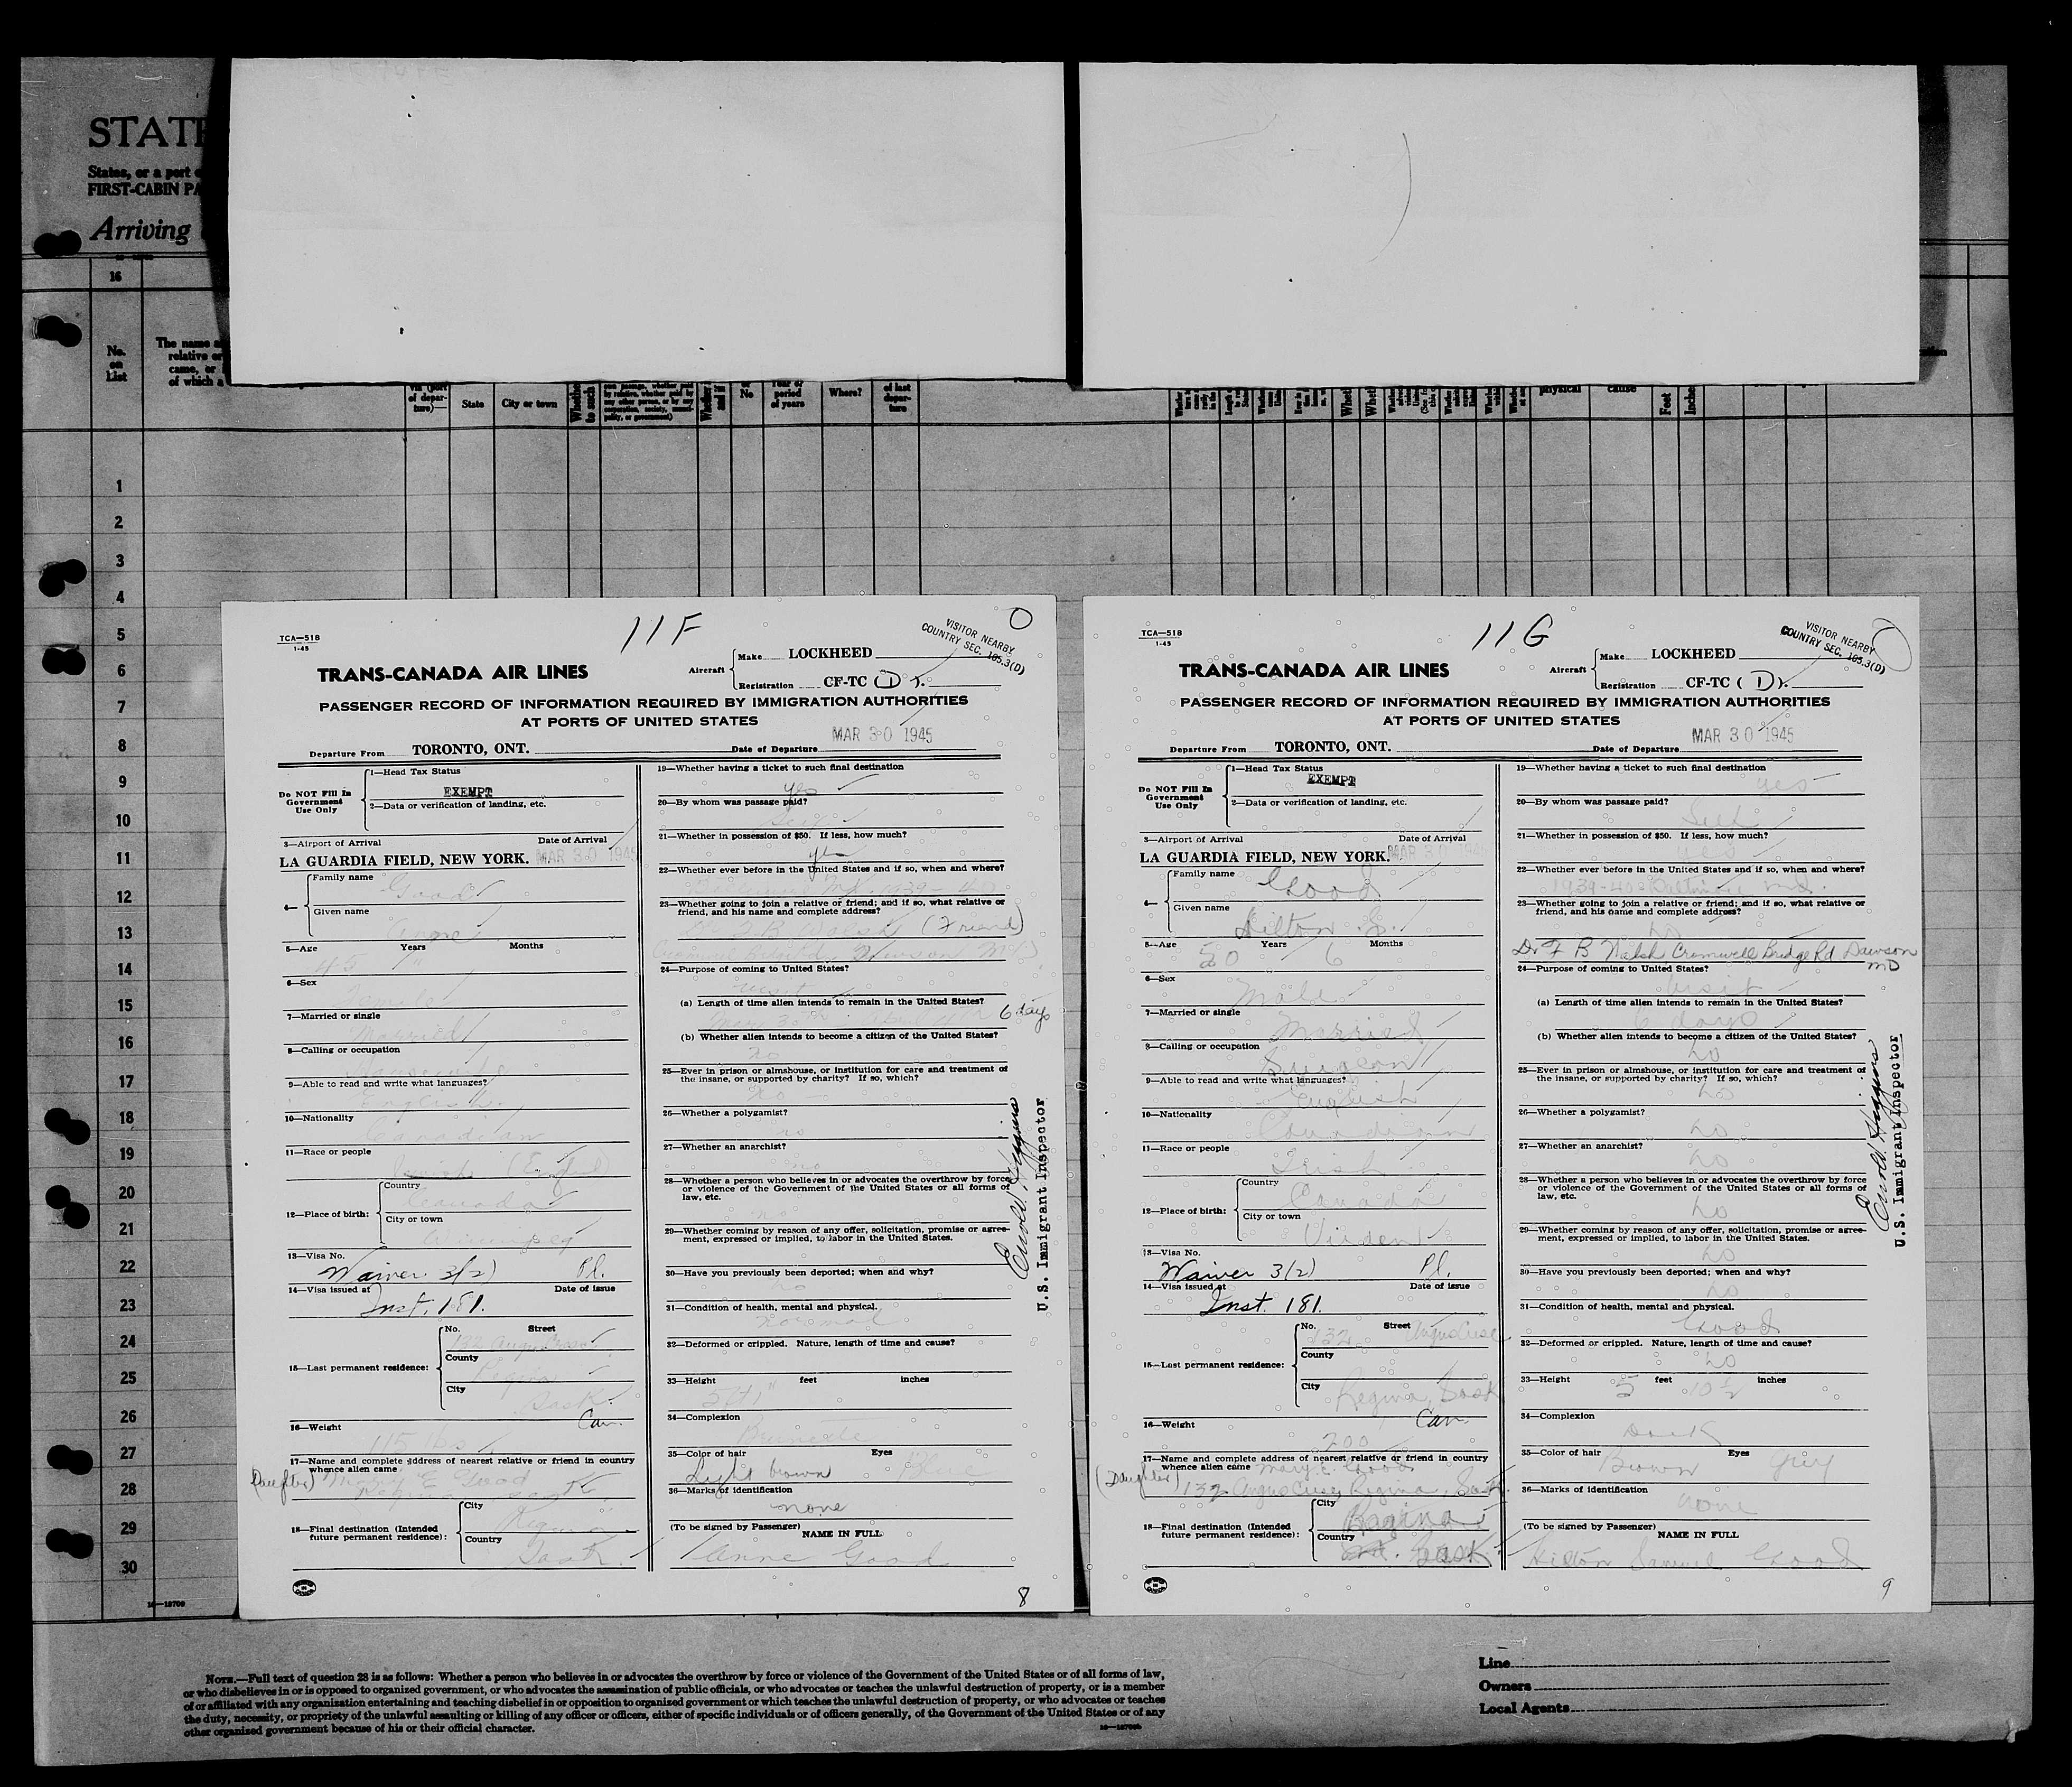 STATE
States, or a port
FIRST-CABIN PA
Arriving
16
No. on List
The name a
relative or
came, or
of which a
via (port
of depar-
ture)—
State
City or town
Whether
to such
own passage, whether paid
by relative, whether paid by
any other person, or by any
corporation, society, munici-
pality, or government)
No
Year or
period
of years
Where?
of last
depar-
ture
physical
cause
Feet
Inches
1
2
3
4
5
6
7
8
9
10
11
12
13
14
15
16
17
18
19
20
21
22
23
24
25
26
27
28
29
30
11F
TCA—518
1-45
VISITOR NEARBY
COUNTRY SEC. 165.3(D)
TRANS-CANADA AIR LINES
Aircraft
Make LOCKHEED
Registration CF-TC (D).
PASSENGER RECORD OF INFORMATION REQUIRED BY IMMIGRATION AUTHORITIES
AT PORTS OF UNITED STATES
MAR 30 1945
Departure From TORONTO, ONT. Date of Departure
Do NOT Fill In
Government
Use Only
1—Head Tax Status
EXEMPT
2—Data or verification of landing, etc.
3—Airport of Arrival Date of Arrival
LA GUARDIA FIELD, NEW YORK. MAR 30 1945
4—
Family name
Good
Given name
Anne
5—Age Years Months
45
6—Sex
Female
7—Married or single
Married
8—Calling or occupation
Housewife
9—Able to read and write what languages?
English
10—Nationality
Canadian
11—Race or people
(English)
12—Place of birth:
Country
Canada
City or town
Winnipeg
13—Visa No.
Waiver 3(2) P.l.
14—Visa issued at Date of issue
Inst. 181.
15—Last permanent residence:
No. Street
132 Angus Cresc
County
Regina
City
Sask.
Can.
16—Weight
115 lbs
17—Name and complete address of nearest relative or friend in country
whence alien came
(Daughter) Mary E Good
Regina Sask
18—Final destination (Intended
future permanent residence):
City
Regina
Country
Sask.
19—Whether having a ticket to such final destination
yes
20—By whom was passage paid?
Self
21—Whether in possession of $50. If less, how much?
yes
22—Whether ever before in the United States and if so, when and where?
Baltimore Md. 1939-40
23—Whether going to join a relative or friend; and if so, what relative or
friend, and his name and complete address?
Dr F B Walsh (Friend)
24—Purpose of coming to United States?
visit
(a) Length of time alien intends to remain in the United States?
6 days
(b) Whether alien intends to become a citizen of the United States?
no
25—Ever in prison or almshouse, or institution for care and treatment of
the insane, or supported by charity? If so, which?
no
26—Whether a polygamist?
no
27—Whether an anarchist?
no
28—Whether a person who believes in or advocates the overthrow by force
or violence of the Government of the United States or all forms of
law, etc.
no
29—Whether coming by reason of any offer, solicitation, promise or agree-
ment, expressed or implied, to labor in the United States.
30—Have you previously been deported; when and why?
no
31—Condition of health, mental and physical.
normal
32—Deformed or crippled. Nature, length of time and cause?
33—Height feet inches
34—Complexion
Brunette
35—Color of hair Eyes
Light brown Blue
36—Marks of identification
none
(To be signed by Passenger) NAME IN FULL
Anne Good
U.S. Immigrant Inspector
8
11G
TCA—518
1-45
VISITOR NEARBY
COUNTRY SEC. 165.3(D)
TRANS-CANADA AIR LINES
Aircraft
Make LOCKHEED
Registration CF-TC (D).
PASSENGER RECORD OF INFORMATION REQUIRED BY IMMIGRATION AUTHORITIES
AT PORTS OF UNITED STATES
MAR 30 1945
Departure From TORONTO, ONT. Date of Departure
Do NOT Fill In
Government
Use Only
1—Head Tax Status
EXEMPT
2—Data or verification of landing, etc.
3—Airport of Arrival Date of Arrival
LA GUARDIA FIELD, NEW YORK. MAR 30 1945
4—
Family name
Good
Given name
Hilton S.
5—Age Years Months
50 6
6—Sex
Male
7—Married or single
Married
8—Calling or occupation
Surgeon
9—Able to read and write what languages?
English
10—Nationality
Canadian
11—Race or people
Irish
12—Place of birth:
Country
Canada
City or town
Virden
13—Visa No.
Waiver 3(2) P.l.
14—Visa issued at Date of issue
Inst. 181.
15—Last permanent residence:
No. Street
132 Angus Cresc
County
City
Regina, Sask
Can.
16—Weight
200
17—Name and complete address of nearest relative or friend in country
whence alien came Mary E. Good
(Daughter) 132 Angus Cresc, Regina, Sask
18—Final destination (Intended
future permanent residence):
City
Regina
Country
Sask
19—Whether having a ticket to such final destination
yes
20—By whom was passage paid?
Self
21—Whether in possession of $50. If less, how much?
yes
22—Whether ever before in the United States and if so, when and where?
1939-40 Baltimore Md.
23—Whether going to join a relative or friend; and if so, what relative or
friend, and his name and complete address?
no
Dr F B Walsh Cromwell Bridge Rd Dawson
MD
24—Purpose of coming to United States?
Visit
(a) Length of time alien intends to remain in the United States?
6 days
(b) Whether alien intends to become a citizen of the United States?
no
25—Ever in prison or almshouse, or institution for care and treatment of
the insane, or supported by charity? If so, which?
no
26—Whether a polygamist?
no
27—Whether an anarchist?
no
28—Whether a person who believes in or advocates the overthrow by force
or violence of the Government of the United States or all forms of
law, etc.
no
29—Whether coming by reason of any offer, solicitation, promise or agree-
ment, expressed or implied, to labor in the United States.
no
30—Have you previously been deported; when and why?
no
31—Condition of health, mental and physical.
Good
32—Deformed or crippled. Nature, length of time and cause?
no
33—Height 5 feet 10½ inches
34—Complexion
Dark
35—Color of hair Eyes
Brown Grey
36—Marks of identification
none
(To be signed by Passenger) NAME IN FULL
Hilton Samuel Good
U.S. Immigrant Inspector
9
16—18709
NOTE.—Full text of question 28 is as follows: Whether a person who believes in or advocates the overthrow by force or violence of the Government of the United States or of all forms of law,
or who disbelieves in or is opposed to organized government, or who advocates the assassination of public officials, or who advocates or teaches the unlawful destruction of property, or is a member
of or affiliated with any organization entertaining and teaching disbelief in or opposition to organized government or which teaches the unlawful destruction of property, or who advocates or teaches
the duty, necessity, or propriety of the unlawful assaulting or killing of any officer or officers, either of specific individuals or of officers generally, of the Government of the United States or of any
other organized government because of his or their official character.
Line
Owners
Local Agents